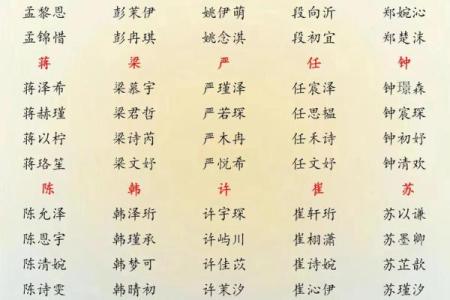 孟黎恩 彭茉伊 姚伊萌 段向沂 郑婉沁
孟锦惜 彭冉琪 姚念淇 段初宜 郑楚沫
蒋 梁 严 任 钟
蒋泽希 梁慕宇 严瑾泽 任宸泽 钟璟森
蒋赫瑾 梁君哲 严若琛 任思韫 钟宸琛
蒋以柠 梁诗芮 严木冉 任禾诗 钟初妤
蒋珞笙 梁文妤 严悦希 任文妤 钟清欢
陈 韩 许 崔 苏
陈允泽 韩泽珩 许宇琛 崔轩珩 苏以谦
陈恩宇 韩瑾承 许屿川 崔栩潇 苏墨卿
陈清婉 韩梦可 许佳苡 崔诗婉 苏芷歆
陈诗雯 韩晴初 许茉汐 崔沁伊 苏瑾汐